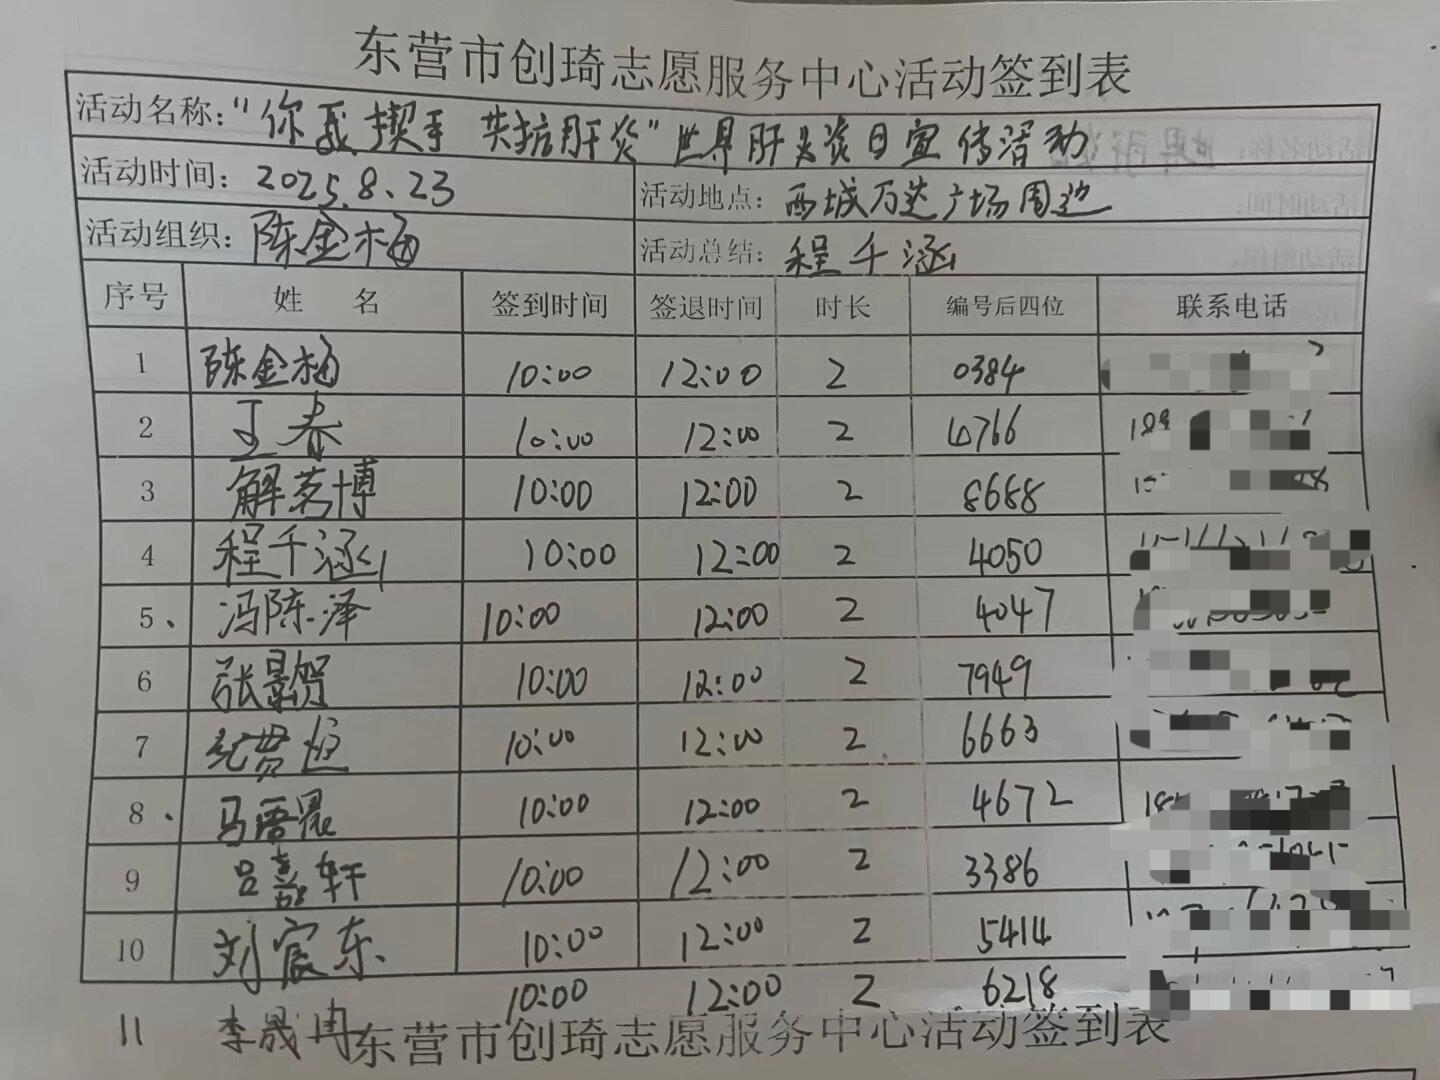 东营市创琦志愿服务中心活动签到表
活动名称："你我携手 共抗肝炎"世界肝炎日宣传活动
活动时间：2025.8.23 活动地点：西城万达广场周边
活动组织：陈金梅 活动总结：程千涵
序号 姓 名 签到时间 签退时间 时长 编号后四位 联系电话
1 陈金梅 10:00 12:00 2 0384
2 王春 10:00 12:00 2 4766
3 解茗博 10:00 12:00 2 8668
4 程千涵 10:00 12:00 2 4050
5、 冯陈泽 10:00 12:00 2 4047
6 张景贺 10:00 12:00 2 7949
7 纪贯 10:00 12:00 2 6663
8、 马语晨 10:00 12:00 2 4672
9 吕嘉轩 10:00 12:00 2 3386
10 刘宸东 10:00 12:00 2 5414
11 李晟冉 10:00 12:00 2 6218
东营市创琦志愿服务中心活动签到表